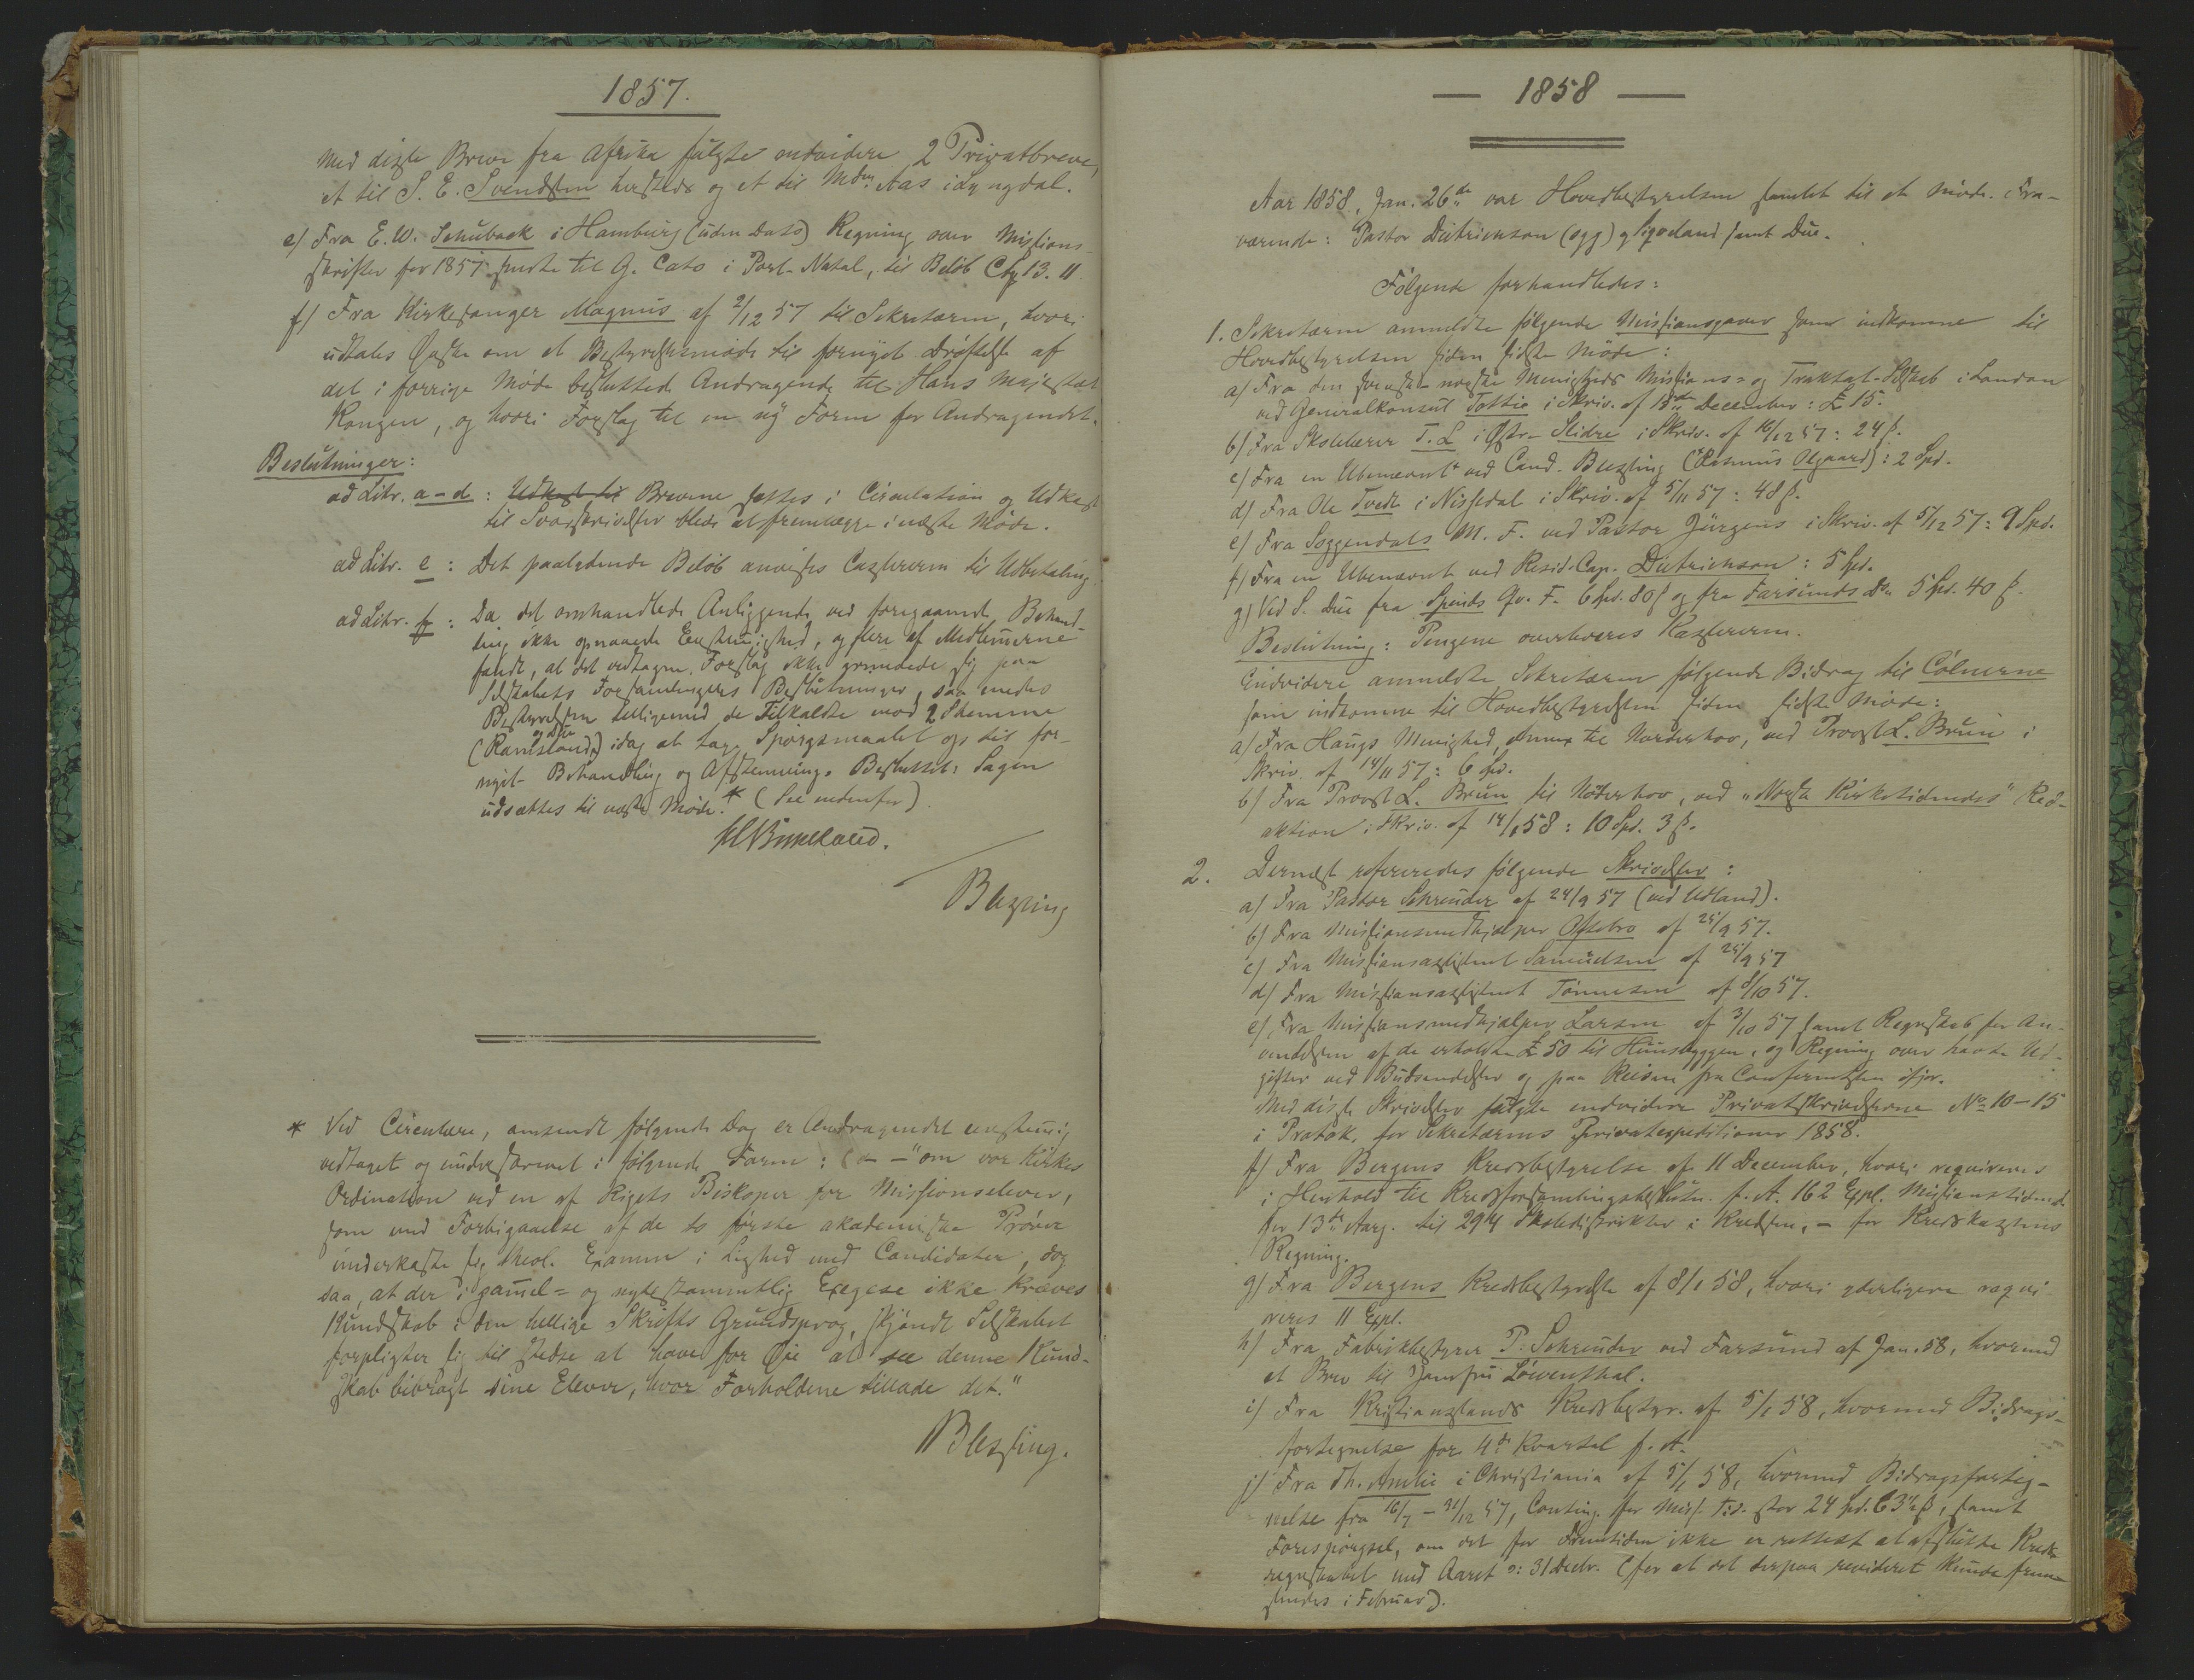 1857.
Med disse Breve fra Afrika fulgte endvidere 2 Privatbreve,
et til S. E. Svendsen hersteds og et til Aas i Lyngdal.
e) Fra E. W. Schuback i Hamburg (uden Dato) Regning over Missions
skrifter for 1857 sendte til G. Cato i Port-Natal, til Beløb 13. 11
f) Fra Kirkesanger Magnus af 2/12 57 til Sekretæren, hvori
udtales Ønske om et Bestyrelsesmøde til fornyet Drøftelse af
det i forrige Møde besluttede Andragende til Hans Majestæt
Kongen, og hvori Forslag til en ny Form for Andragendet.
Beslutninger:
ad Litr. a-d: Udkast til Brevene sættes i Circulation og Udkast
til Svarskrivelser blive at fremlægge i næste Møde.
ad Litr. e: Det paalydende Beløb anvises Cassereren til Udbetaling.
ad Litr. f: Da det omhandlede Anliggende ved foregaaende Behand-
ling ikke opnaaede Enstemmighed, og flere af Medlemmerne
fandt, at det vedtagne Forslag ikke grundede sig paa
Selskabets Forsamlingers Beslutninger, saa
Bestyrelsen tilligemed de Tilkaldte mod 2 Stemme
(Ramsland og Due) idag at tage Spørgsmaalet op til for-
nyet Behandling og Afstemning. Besluttet: Sagen
udsættes til næste Møde.* (See nedenfor).
Blessing
* Ved Circulære, omsendt følgende Dag er Andragendet enstemmig
vedtaget og underskrevet i følgende Form: ( - - "om vor Kirkes
Ordination ved en af Rigets Biskoper for Missionselever,
som med Forbigaaelse af de to første akademiske Prøver
underkaste sig theol. Examen i Lighed med Candidater, dog
saa, at der i gammel= og nytestamentlig Exegese ikke kræves
Kundskab i den hellige Skrifts Grundsprog, skjøndt Selskabet
forpligter sig til stedse at have for Øie at see denne Kund-
skab bibragt sine Elever, hvor Forholdene tillade det."
Blessing.
— 1858 —
Aar 1858, Jan. 26de var Hovedbestyrelsen samlet til et Møde. Fra-
værende: Pastor Dietrichson (syg) og Sigveland samt Due.
Følgende forhandledes:
1. Sekretæren anmeldte følgende Missionsgaver som indkomne til
Hovedbestyrelsen siden sidste Møde:
a) Fra den svensk-norske Menigheds Missions= og Traktat-Selskab i London
ved Generalkonsul Tottie i Skriv. af 18de December: £ 15.
b) Fra Skolelærer T. L i Østr-Slidre i Skriv. af 16/12 57: 24 ß.
c) Fra en Ubenævnt ved Cand. Blessing (Rasmus Olgaard): 2 Spd.
d) Fra Ole Tvedt i Nissedal i Skriv. af 5/11 57: 48 ß.
e) Fra Soggendals M. F. ved Pastor Jürgens i Skriv. af 5/12 57: 9 Spd.
f) Fra en Ubenævnt ved Resid. Cap. Dietrichson: 5 Spd.
g) Ved S. Due fra Spinds Qv. F. 6 Spd. 80 ß og fra Farsunds Do 5 Spd. 40 ß.
Beslutning: Pengene overleveres Kassereren.
Endvidere anmeldte Sekretæren følgende Bidrag til Cólnerne
som indkomne til Hovedbestyrelsen siden sidste Møde:
a) Fra Haugs Menighed, Annex til Norderhov, ved Provst L. Brun i
Skriv. af 14/11 57: 6 Spd.
b) Fra Provst L. Brun til Norderhov, ved "Norsk Kirketidendes" Red-
aktion i Skriv. af 14/1 58: 10 Spd. 3 ß.
2. Dernæst refereredes følgende Skrivelser:
a) Fra Pastor Schreuder af 24/9 57 (ved Udland).
b) Fra Missionsmedhjælper Oftebro af 25/9 57.
c) Fra Missionsassistent Samuelsen af 25/9 57
d) Fra Missionsassistent Tønnesen af 8/10 57.
e) Fra Missionsmedhjælper Larsen af 3/10 57 samt Regnskab for An-
vendelsen af de erholdte £ 50 til Huusbyggen, og Regning over havte Ud-
gifter ved Budsendelser og paa Reisen fra Conferentsen ifjor.
Med disse Skrivelser fulgte endvidere Privatskrivelserne No 10-15
i Protok. for Sekretærens Privatexpeditioner 1858.
f) Fra Bergens Kredsbestyrelse af 11 December, hvori requireres
i Henhold til Kredsforsamlingsbeslutn. f. A. 162 Expl. Missionstidende
for 13de Aarg. til 294 Skoledistrikter i Kredsen, - for Kredskassens
Regning.
g) Fra Bergens Kredsbestyrelse af 8/1 58, hvori yderligere requi
reres 11 Expl.
h) Fra Fabrikbestyrer P. Schreuder ved Farsund af Jan. 58, hvormed
et Brev til Jomfru Löwenthal.
i) Fra Kristianssands Kredsbestyr. af 5/1 58, hvormed Bidrags-
fortegnelse for 4de Kvartal f. A.
j) Fra Th. Amlie i Christiania af 5/1 58, hvormed Bidragsforteg-
nelse fra 16/7 - 31/12 57, Conting. for Miss. Tid. stor 24 Spd. 63½ ß, samt
Forespørgsel, om det for Fremtiden ikke er rettest at afslutte Kreds
regnskabet med Aaret ɔ: 31 Decbr. (for at det derpaa revideret kunde frem
sendes i Februar).